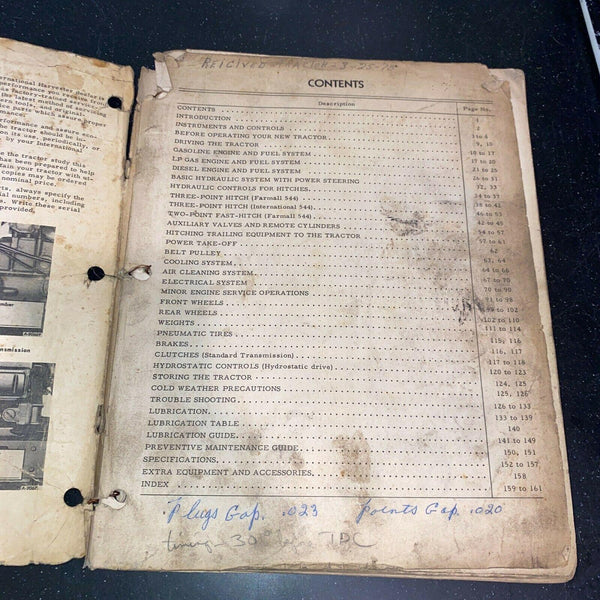 International Harvester dealer is
performance you receive from
as factory-trained servicemen
the latest method of
ern tools, and original-
rable parts which assure proper
rformance and assure eco-
he tractor should be in-
on its use, periodically, or
by your International
e the tractor study this
has been prepared to help
tain your tractor with
copies may be ordered
nominal price.
rts, always specify the
ial numbers, including
s. Write these serial
provided.
mber
nsmission
TRACTOR 8-25-70
CONTENTS
Description Page No.
CONTENTS 1
INTRODUCTION 2
INSTRUMENTS AND CONTROLS
BEFORE OPERATING YOUR NEW TRACTOR 9, 10
DRIVING THE TRACTOR 10 to 17
GASOLINE ENGINE AND FUEL SYSTEM 17 to 20
LP GAS ENGINE AND FUEL SYSTEM 21 to 25
DIESEL ENGINE AND FUEL SYSTEM 26 to 31
BASIC HYDRAULIC SYSTEM WITH POWER STEERING 32, 33
HYDRAULIC CONTROLS FOR HITCHES 34 to 37
THREE-POINT HITCH (Farmall 544) 38 to 42
THREE-POINT HITCH (International 544) 42 to 45
TWO-POINT FAST-HITCH (Farmall 544) 46 to 53
AUXILIARY VALVES AND REMOTE CYLINDERS 54 to 57
HITCHING TRAILING EQUIPMENT TO THE TRACTOR 57 to 61
POWER TAKE-OFF 62
BELT PULLEY 63
COOLING SYSTEM 64 to 66
AIR CLEANING SYSTEM 67 to 70
ELECTRICAL SYSTEM 70 to 90
MINOR ENGINE SERVICE OPERATIONS 91 to 98
FRONT WHEELS 99 to 102
REAR WHEELS 102 to 110
WEIGHTS 111 to 114
PNEUMATIC TIRES 115, 116
BRAKES 116, 117
CLUTCHES (Standard Transmission) 117 to 118
HYDROSTATIC CONTROLS (Hydrostatic drive) 120 to 123
STORING THE TRACTOR 124, 125
COLD WEATHER PRECAUTIONS 125, 126
TROUBLE SHOOTING 126 to 133
LUBRICATION 133 to 139
LUBRICATION TABLE 140
LUBRICATION GUIDE 141 to 149
PREVENTIVE MAINTENANCE GUIDE 150, 151
SPECIFICATIONS 152 to 157
EXTRA EQUIPMENT AND ACCESSORIES 158
INDEX 159 to 161
Plugs Gap. .023 Points Gap .020
timing 30 TDC